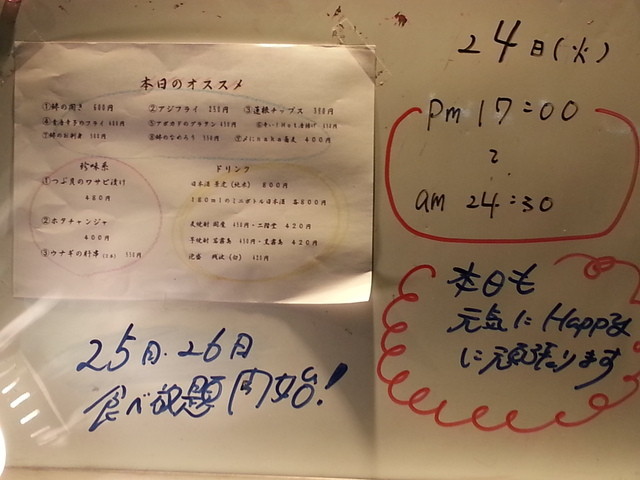 本日のオススメ
①鯵の開き 600円 ②アジフライ 250円 ③蓮根チップス 380円
⑤アボカドのグラタン
⑦鯵のお刺身 ⑧鯵のなめろう 400円
珍味系
①つぶ貝のワサビ漬け
480円
②ホタチャンジャ
400円
③ウナギの肝串
ドリンク
800円
180mlのミニボトル日本酒 各800円
麦焼酎 二階堂 420円
芋焼酎 黒霧島 420円
泡盛 残波(白)
24日(火)
pm 17:00
〜
am 24:30
本日も
元気にHappy
に頑張ります
25日・26日
食べ放題開始!